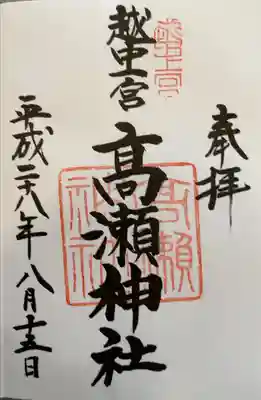 奉拝
越中一宮
高瀬神社
平成二十八年八月十五日
越中一宮
高瀬神社